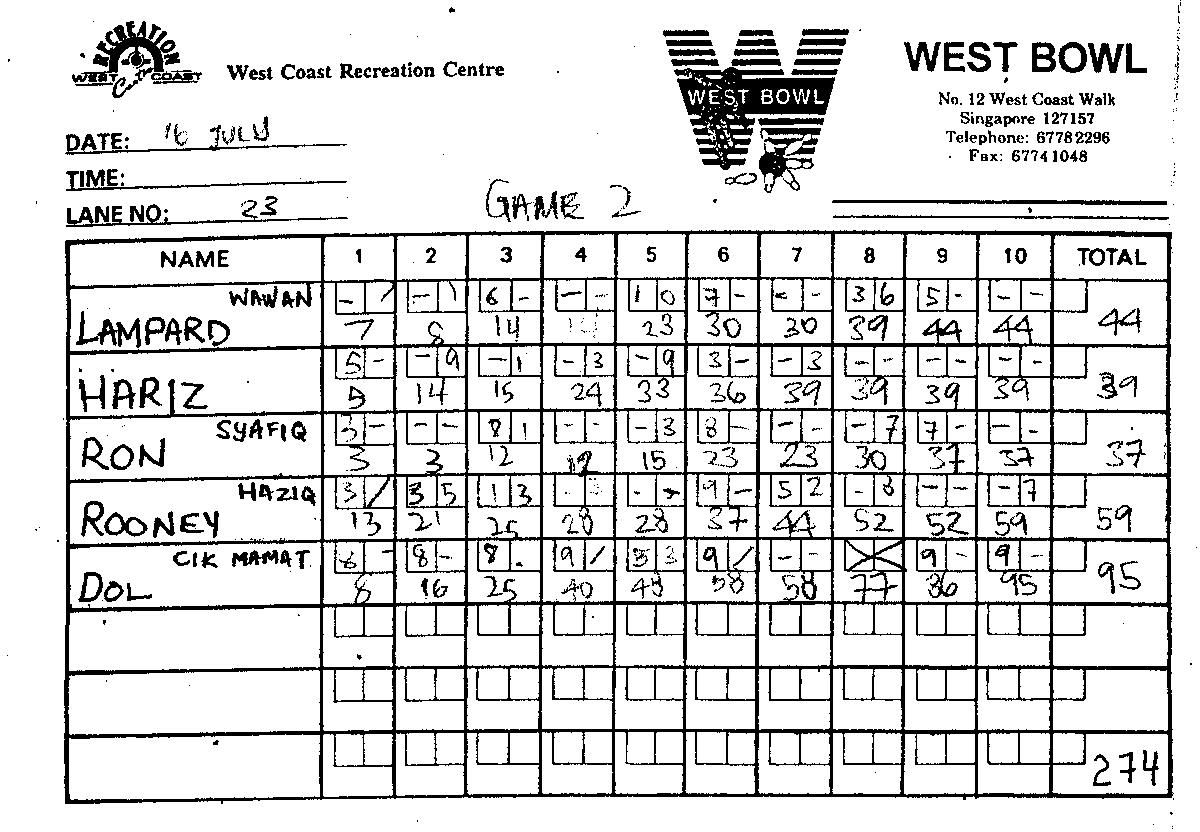 RECREATION
WEST Centre COAST
West Coast Recreation Centre
WEST BOWL
WEST BOWL
No. 12 West Coast Walk
Singapore 127157
Telephone: 67782296
Fax: 67741048
DATE: 16 JULY
TIME:
LANE NO: 23
GAME 2
NAME 1 2 3 4 5 6 7 8 9 10 TOTAL
WAWAN - 7 - 1 6 - - - 1 0 7 - - - 3 6 5 - - -
LAMPARD 7 8 14 23 30 30 39 44 44 44
5 - - 9 - 1 - 3 - 9 3 - - 3 - - - - - -
HARIZ 5 14 15 24 33 36 39 39 39 39 39
SYAFIQ 3 - - - 8 1 - - - 3 8 - - - - 7 7 - - -
RON 3 3 12 12 15 23 23 30 37 37 37
HAZIQ 3 / 3 5 1 3 - 3 - - 9 - 5 2 - 8 - - - 7
ROONEY 13 21 25 28 28 37 44 52 52 59 59
CIK MAMAT 8 - 8 - 8 . 9 / 5 3 9 / - - X 9 - 9 -
DOL 8 16 25 40 48 58 58 77 86 95 95
274